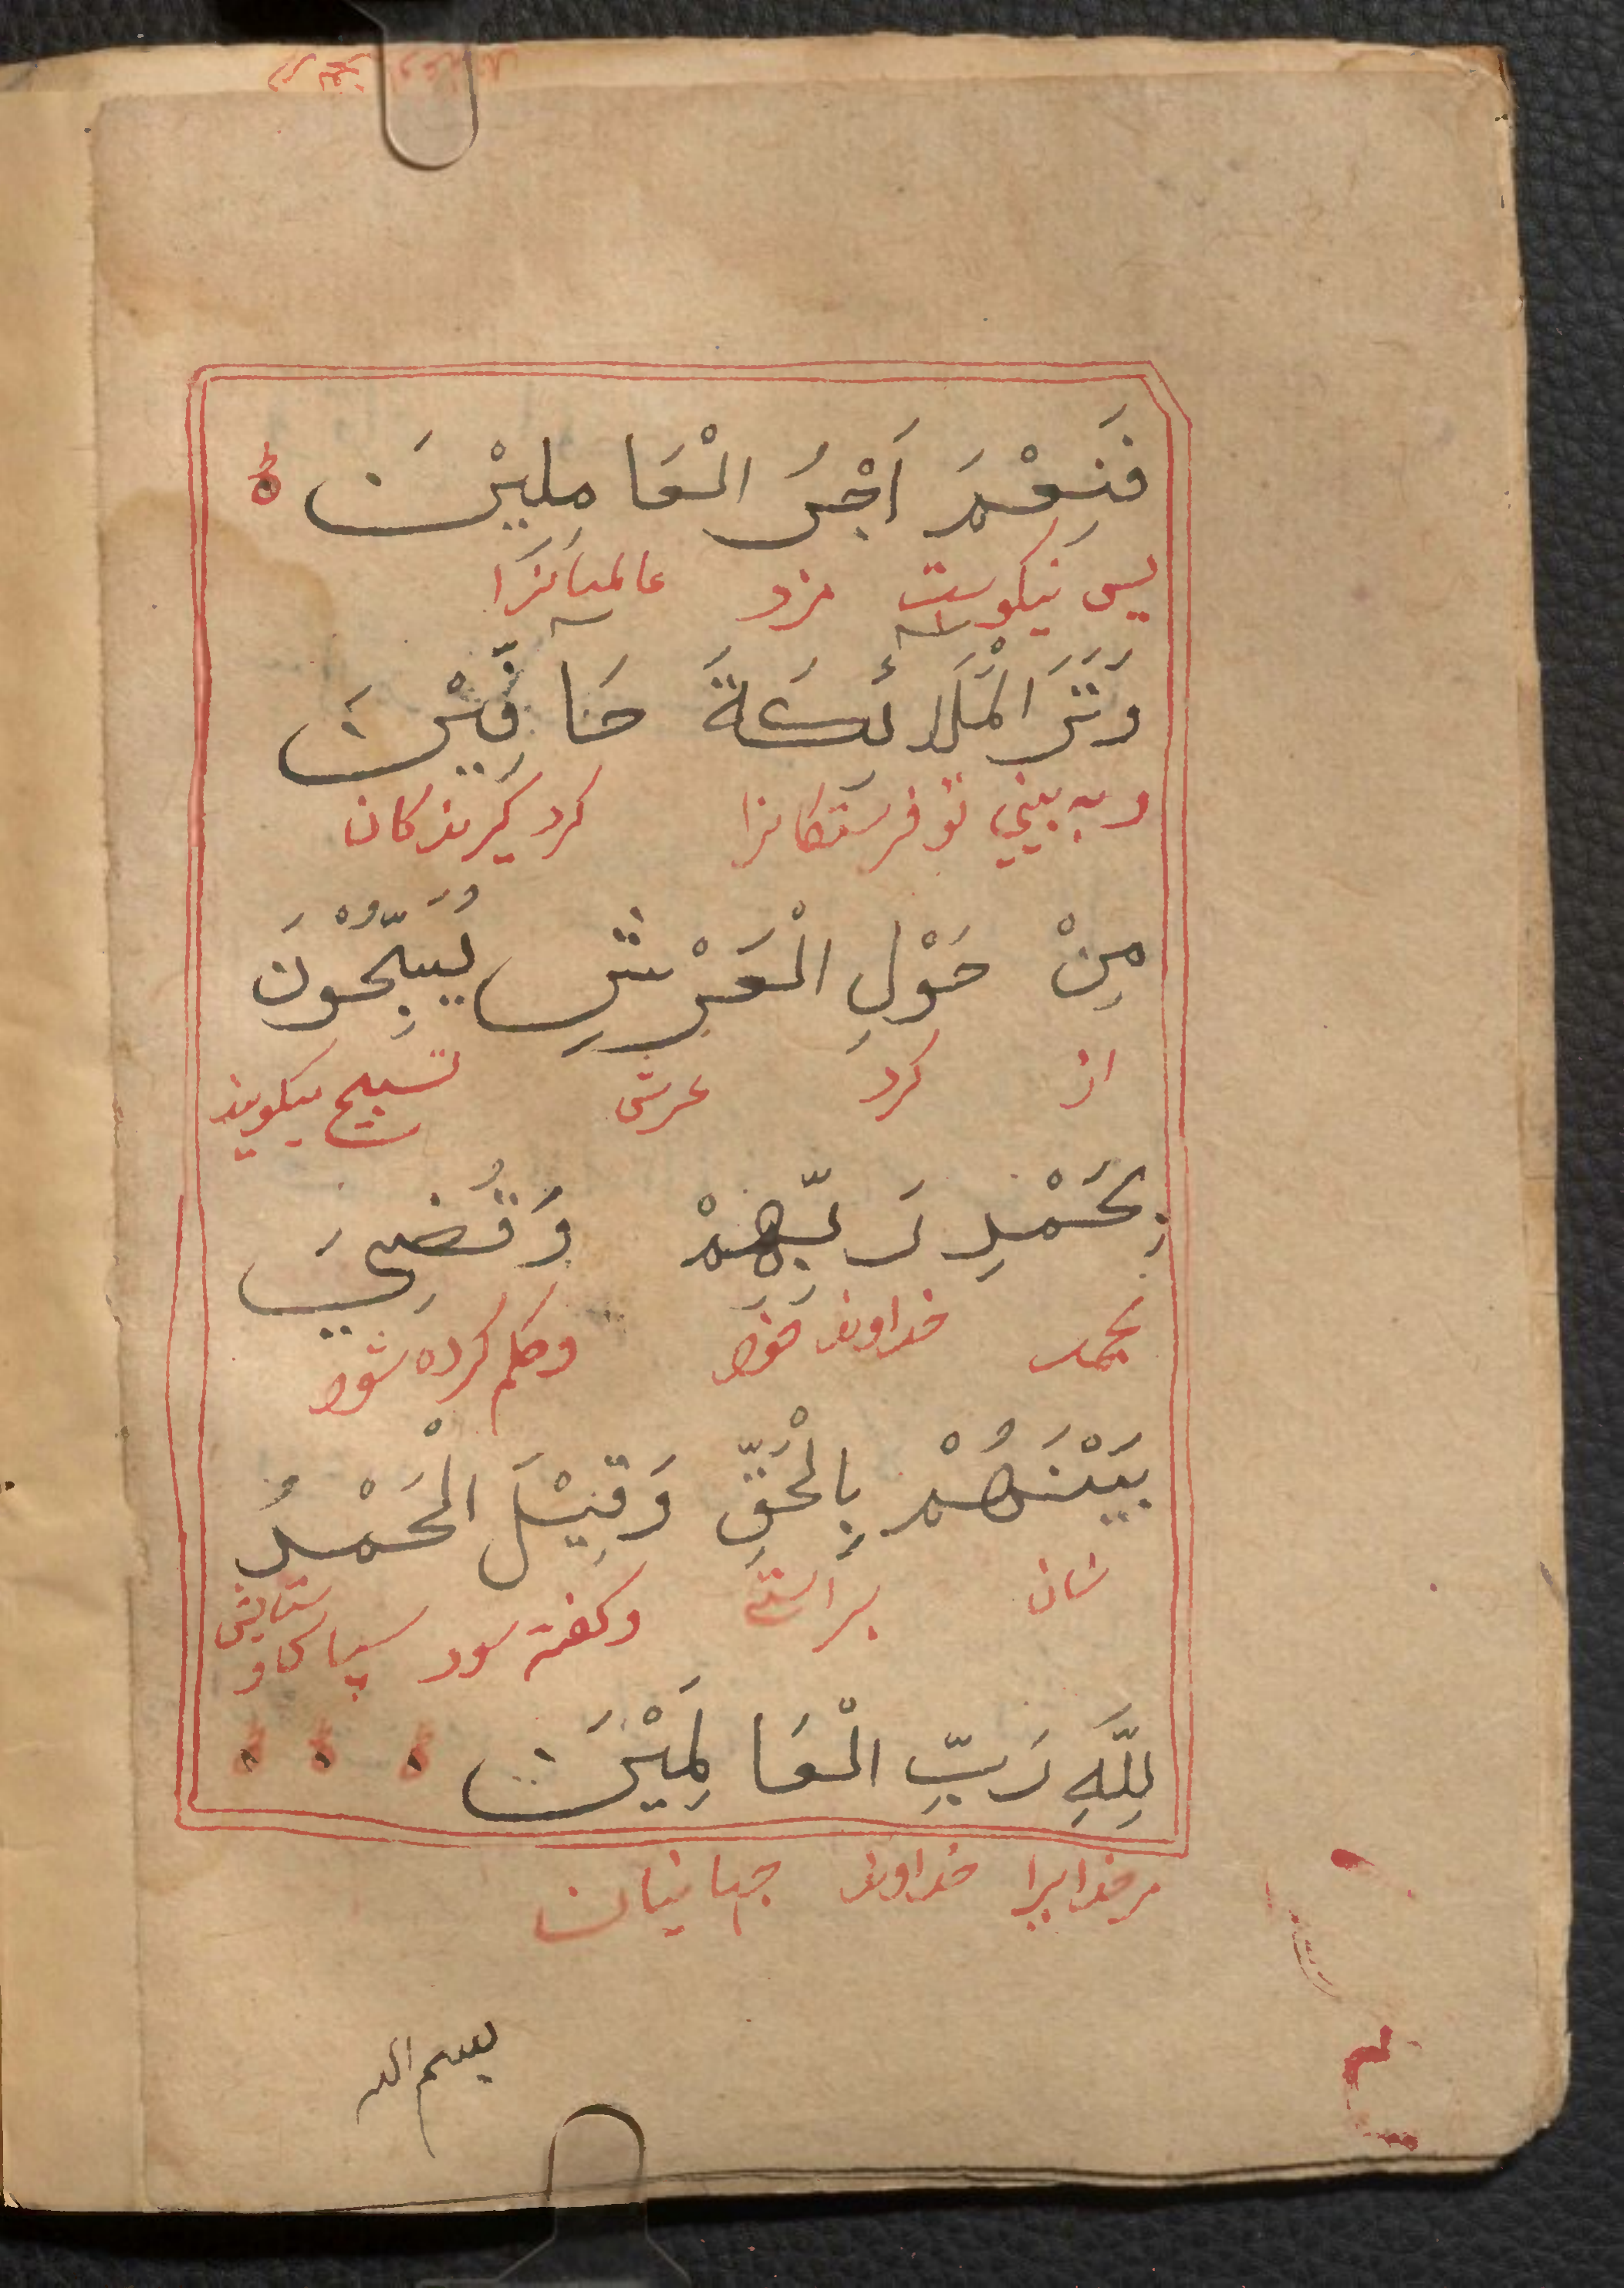 فَنِعْمَ اَجْرُ الْعَامِلِيْنَ
پس نیکوست مزد عالمیانرا
وَتَرَ الْمَلَائكَةَ حَافِّيْنَ
و به بینی تو فرستکانرا کرد کیرندکان
مِنْ حَوْلِ الْعَرْشِ يُسَبِّحُوْنَ
از کرد عرش تسبیح میکویند
بِحَمْدِ رَبِّهِمْ وَقُضِيَ
بحمد خداوند خود وحکم کرده شود
بَيْنَهُمْ بِالْحَقِّ وَقِيْلَ الْحَمْدُ
شان براستی وکفته سود سپاس و ستایش
لِلَّهِ رَبِّ الْعَا لَمِيْنَ
مر خدایرا خداوند جهانیان
بسم الله